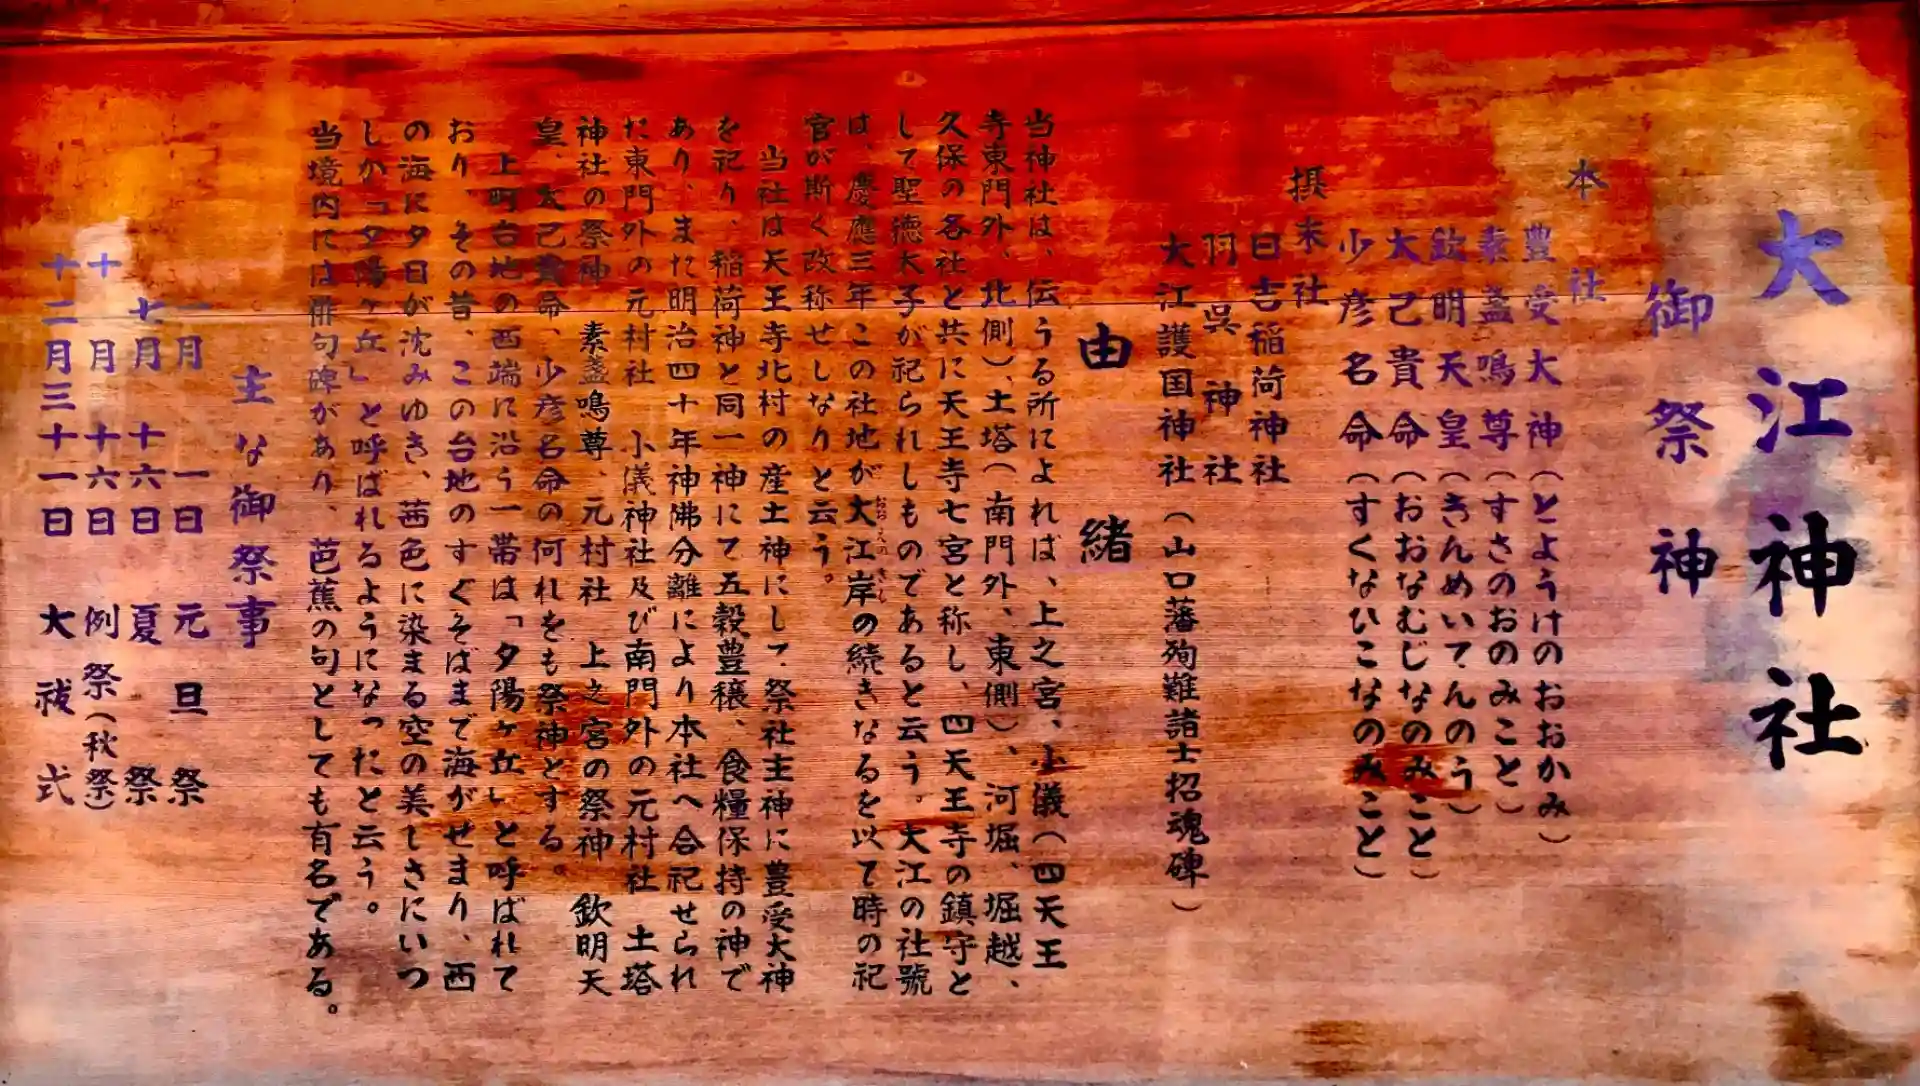 大江神社
御祭神
本社
豊受大神（とようけのおおかみ）
素盞鳴尊（すさのおのみこと）
欽明天皇（きんめいてんのう）
大己貴命（おおなむじなのみこと）
少彦名命（すくなひこなのみこと）
摂末社
日吉稲荷神社
呉神社
大江護国神社（山口藩殉難諸士招魂碑）
由緒
当神社は、伝うる所によれば、上之宮、小儀（四天王
寺東門外、北側）、土塔（南門外、東側）、河堀、堀越、
久保の各社と共に天王寺七宮と称し、四天王寺の鎮守と
して聖徳太子が祀られしものであると云う。大江の社號
は、慶應三年この社地が大江岸の続きなるを以て時の祀
官が斯く改称せしなりと云う。
当社は天王寺北村の産土神にして、祭社主神に豊受大神
を祀り、稲荷神と同一神にて五穀豊穣、食糧保持の神で
あり、また明治四十年神佛分離により本社へ合祀せられ
た東門外の元村社　小儀神社及び南門外の元村社　土塔
神社の祭神　素盞鳴尊、元村社　上之宮の祭神　欽明天
皇、大己貴命、少彦名命の何れをも祭神とする。
上町台地の西端に沿う一帯は「夕陽ヶ丘」と呼ばれて
おり、その昔、この台地のすぐそばまで海がせまり、西
の海に夕日が沈みゆき、茜色に染まる空の美しさにいつ
しか「夕陽ヶ丘」と呼ばれるようになったと云う。
当境内には俳句碑があり、芭蕉の句としても有名である。
主な御祭事
一月　一日　元旦祭
七月　十六日　夏祭
十月　十六日　例祭（秋祭）
十二月三十一日　大祓式